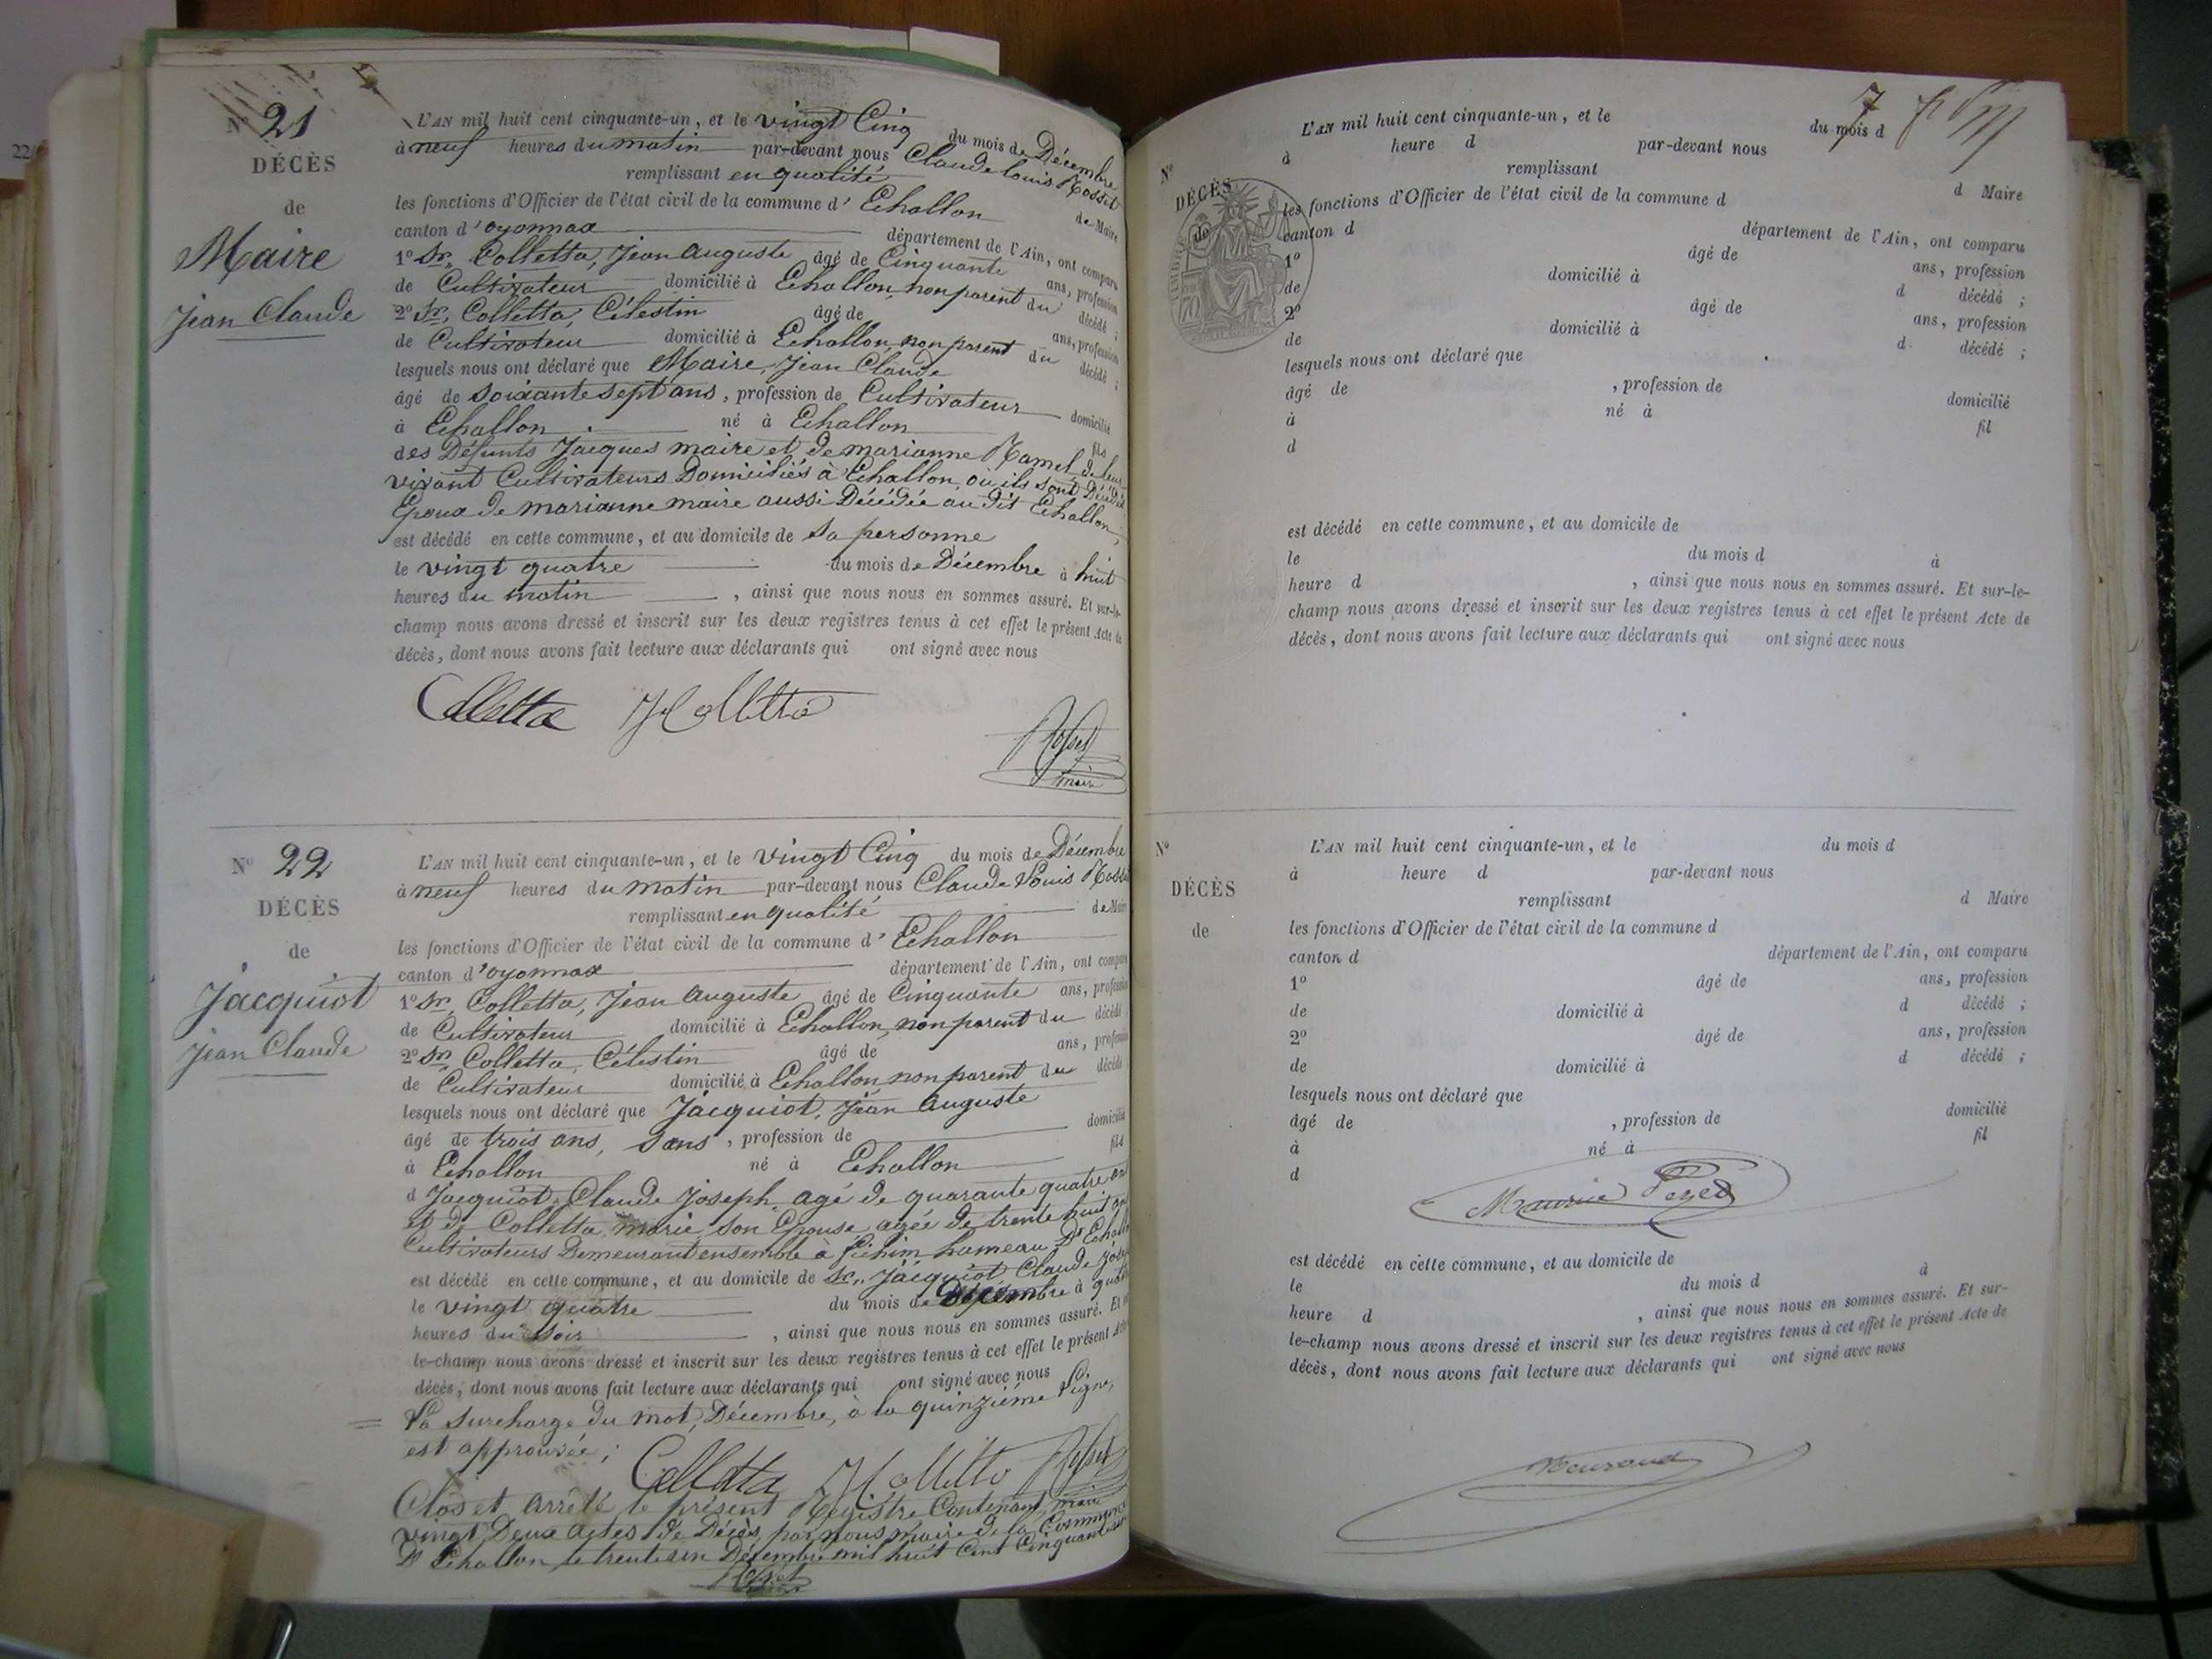 22
N° 21
DÉCÈS
de
Maire
Jean Claude
L'AN mil huit cent cinquante-un, et le vingt Cinq du mois de Décembre
à neuf heures du matin par-devant nous Claude Louis Rosset
remplissant en qualité de Maire
les fonctions d'Officier de l'état civil de la commune d' Echallon
canton d'oyonnax département de l'Ain, ont comparu
1° Sr, Colletta, Jean Auguste âgé de Cinquante ans, profession
de Cultivateur domicilié à Echallon, non parent du décédé ;
2° Sr, Colletta, Célestin âgé de ans, profession
de Cultivateur domicilié à Echallon, non parent du décédé ;
lesquels nous ont déclaré que Maire, Jean Claude
âgé de soixante sept ans, profession de Cultivateur domicilié
à Echallon né à Echallon fils
des Défunts Jacques maire et de marianne Ramel, de leur
vivant Cultivateurs Domiciliés à Echallon, où ils sont Décédés
Epoux de marianne maire aussi Décédée au dit Echallon,
est décédé en cette commune, et au domicile de sa personne
le vingt quatre du mois de Décembre à huit
heures du matin , ainsi que nous nous en sommes assuré. Et sur-le-
champ nous avons dressé et inscrit sur les deux registres tenus à cet effet le présent Acte de
décès, dont nous avons fait lecture aux déclarants qui ont signé avec nous
Colletta JColletta
Rosset
maire
N° 22
DÉCÈS
de
Jacquiot
Jean Claude
L'AN mil huit cent cinquante-un, et le vingt Cinq du mois de Décembre
à neuf heures du matin par-devant nous Claude Louis Rosset
remplissant en qualité de Maire
les fonctions d'Officier de l'état civil de la commune d' Echallon
canton d'oyonnax département de l'Ain, ont comparu
1° Sr, Colletta, Jean Auguste âgé de Cinquante ans, profession
de Cultivateur domicilié à Echallon, non parent du décédé
2° Sr, Colletta, Célestin âgé de ans, profession
de Cultivateur domicilié à Echallon, non parent du décédé
lesquels nous ont déclaré que Jacquiot, Jean Auguste
âgé de trois ans, Sans , profession de domicilié
à Echallon né à Echallon fils
d Jacquiot, Claude Joseph, agé de quarante quatre ans
et de Colletta, marie, son Epouse, agée de trente huit ans
Cultivateurs Demeurant ensemble à hameau D'Echallon
est décédé en cette commune, et au domicile de Sr, Jacquiot Claude Joseph
le vingt quatre du mois de Décembre à quatre
heures du Soir , ainsi que nous nous en sommes assuré. Et sur-
le-champ nous avons dressé et inscrit sur les deux registres tenus à cet effet le présent Acte
décès, dont nous avons fait lecture aux déclarants qui ont signé avec nous
La surcharge du mot, Décembre, à la quinzième Ligne,
est approuvée ;
Colletta JColletta Rosset
maire
Clos et arrêté le présent Registre Contenant
vingt Deux actes de Décès, par nous maire de la Commune
D'Echallon, le trente un Décembre mil huit Cent Cinquante un
Rosset
7
L'AN mil huit cent cinquante-un, et le du mois d
à heure d par-devant nous
N°
DÉCÈS
de
remplissant d Maire
les fonctions d'Officier de l'état civil de la commune d
canton d département de l'Ain, ont comparu
1° âgé de ans, profession
de domicilié à d décédé ;
2° âgé de ans, profession
de domicilié à d décédé ;
lesquels nous ont déclaré que
âgé de , profession de domicilié
à né à fil
d
est décédé en cette commune, et au domicile de
le du mois d à
heure d , ainsi que nous nous en sommes assuré. Et sur-le-
champ nous avons dressé et inscrit sur les deux registres tenus à cet effet le présent Acte de
décès, dont nous avons fait lecture aux déclarants qui ont signé avec nous
N°
DÉCÈS
de
L'AN mil huit cent cinquante-un, et le du mois d
à heure d par-devant nous
remplissant d Maire
les fonctions d'Officier de l'état civil de la commune d
canton d département de l'Ain, ont comparu
1° âgé de ans, profession
de domicilié à d décédé ;
2° âgé de ans, profession
de domicilié à d décédé ;
lesquels nous ont déclaré que
âgé de , profession de domicilié
à né à fil
d
Maurice
est décédé en cette commune, et au domicile de
le du mois d à
heure d , ainsi que nous nous en sommes assuré. Et sur-
le-champ nous avons dressé et inscrit sur les deux registres tenus à cet effet le présent Acte de
décès, dont nous avons fait lecture aux déclarants qui ont signé avec nous